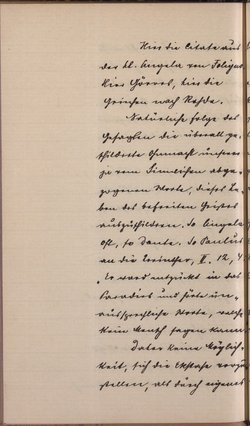 Hier die Citate aus
der hl. Angela von Foligno
Hier Görres, hier die
Griechen nach Rohde.
Natürliche Folge des
Gesagten die überall ge-
schilderte Ohnmacht unserer
zu vom Sinnlichen abge-
zogenen Worte, dieses Le-
ben des befreiten Geistes
auszuschildern. So Angela
oft, so Dante. So Paulus
an die Corinther, II. 12, 4
"Er ward entzückt in das
Paradies und hörte un-
aussprechliche Worte, welche
kein Mensch sagen kann
Daher keine Möglich-
keit, sich die Ekstase vorzu-
stellen, als durch eigenes